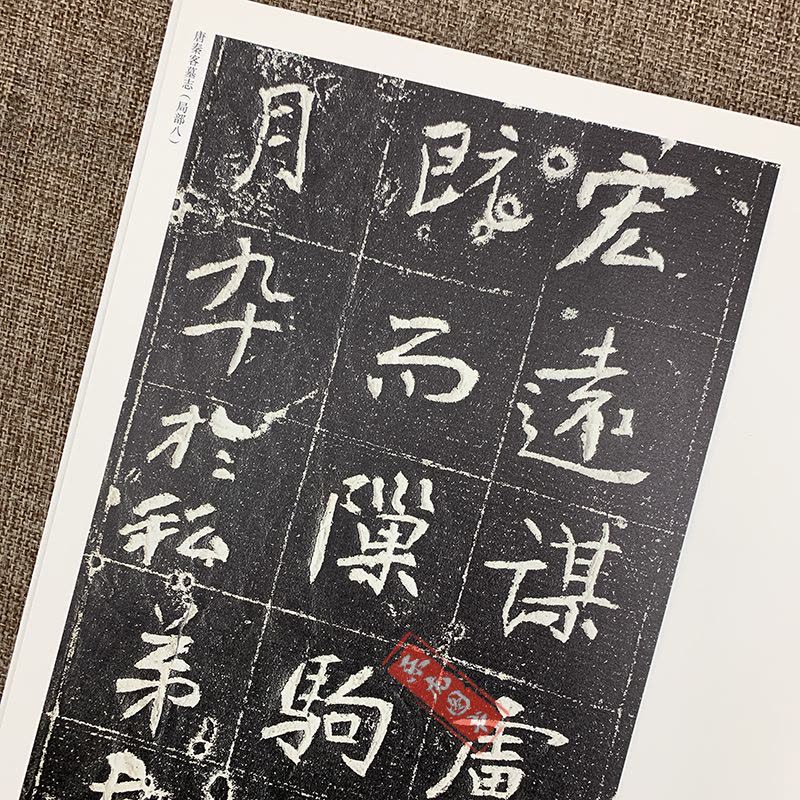 唐秦客墓志（局部八）
宏遠謀
既而隟駒
月卆於私弟